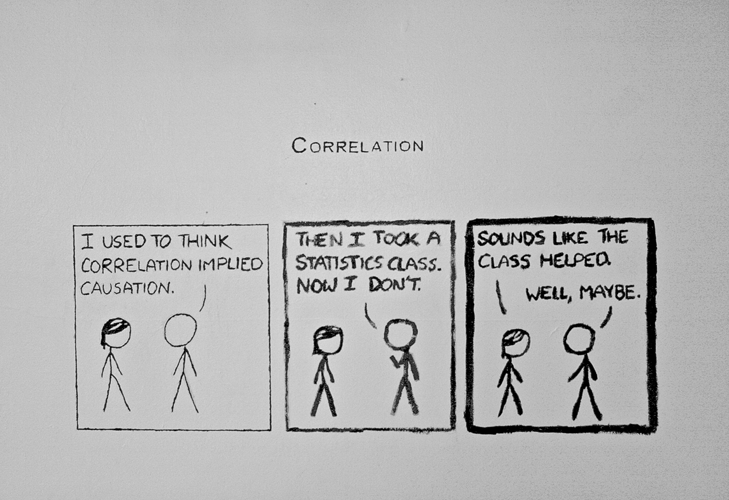 CORRELATION
I USED TO THINK
CORRELATION IMPLIED
CAUSATION.
THEN I TOOK A
STATISTICS CLASS.
NOW I DON'T.
SOUNDS LIKE THE
CLASS HELPED.
WELL, MAYBE.